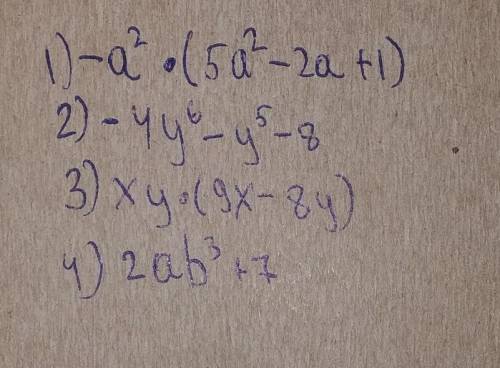 1) -a² • (5a² - 2a + 1)
2) - 4y⁶ - y⁵ - 8
3) xy • (9x - 8y)
4) 2ab³ + 7